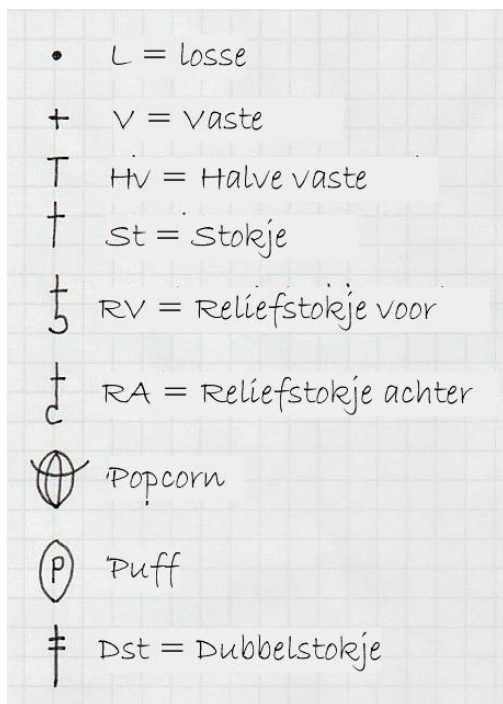 L = losse
V = Vaste
HV = Halve vaste
St = Stokje
RV = Reliefstokje voor
RA = Reliefstokje achter
Popcorn
P Puff
Dst = Dubbelstokje